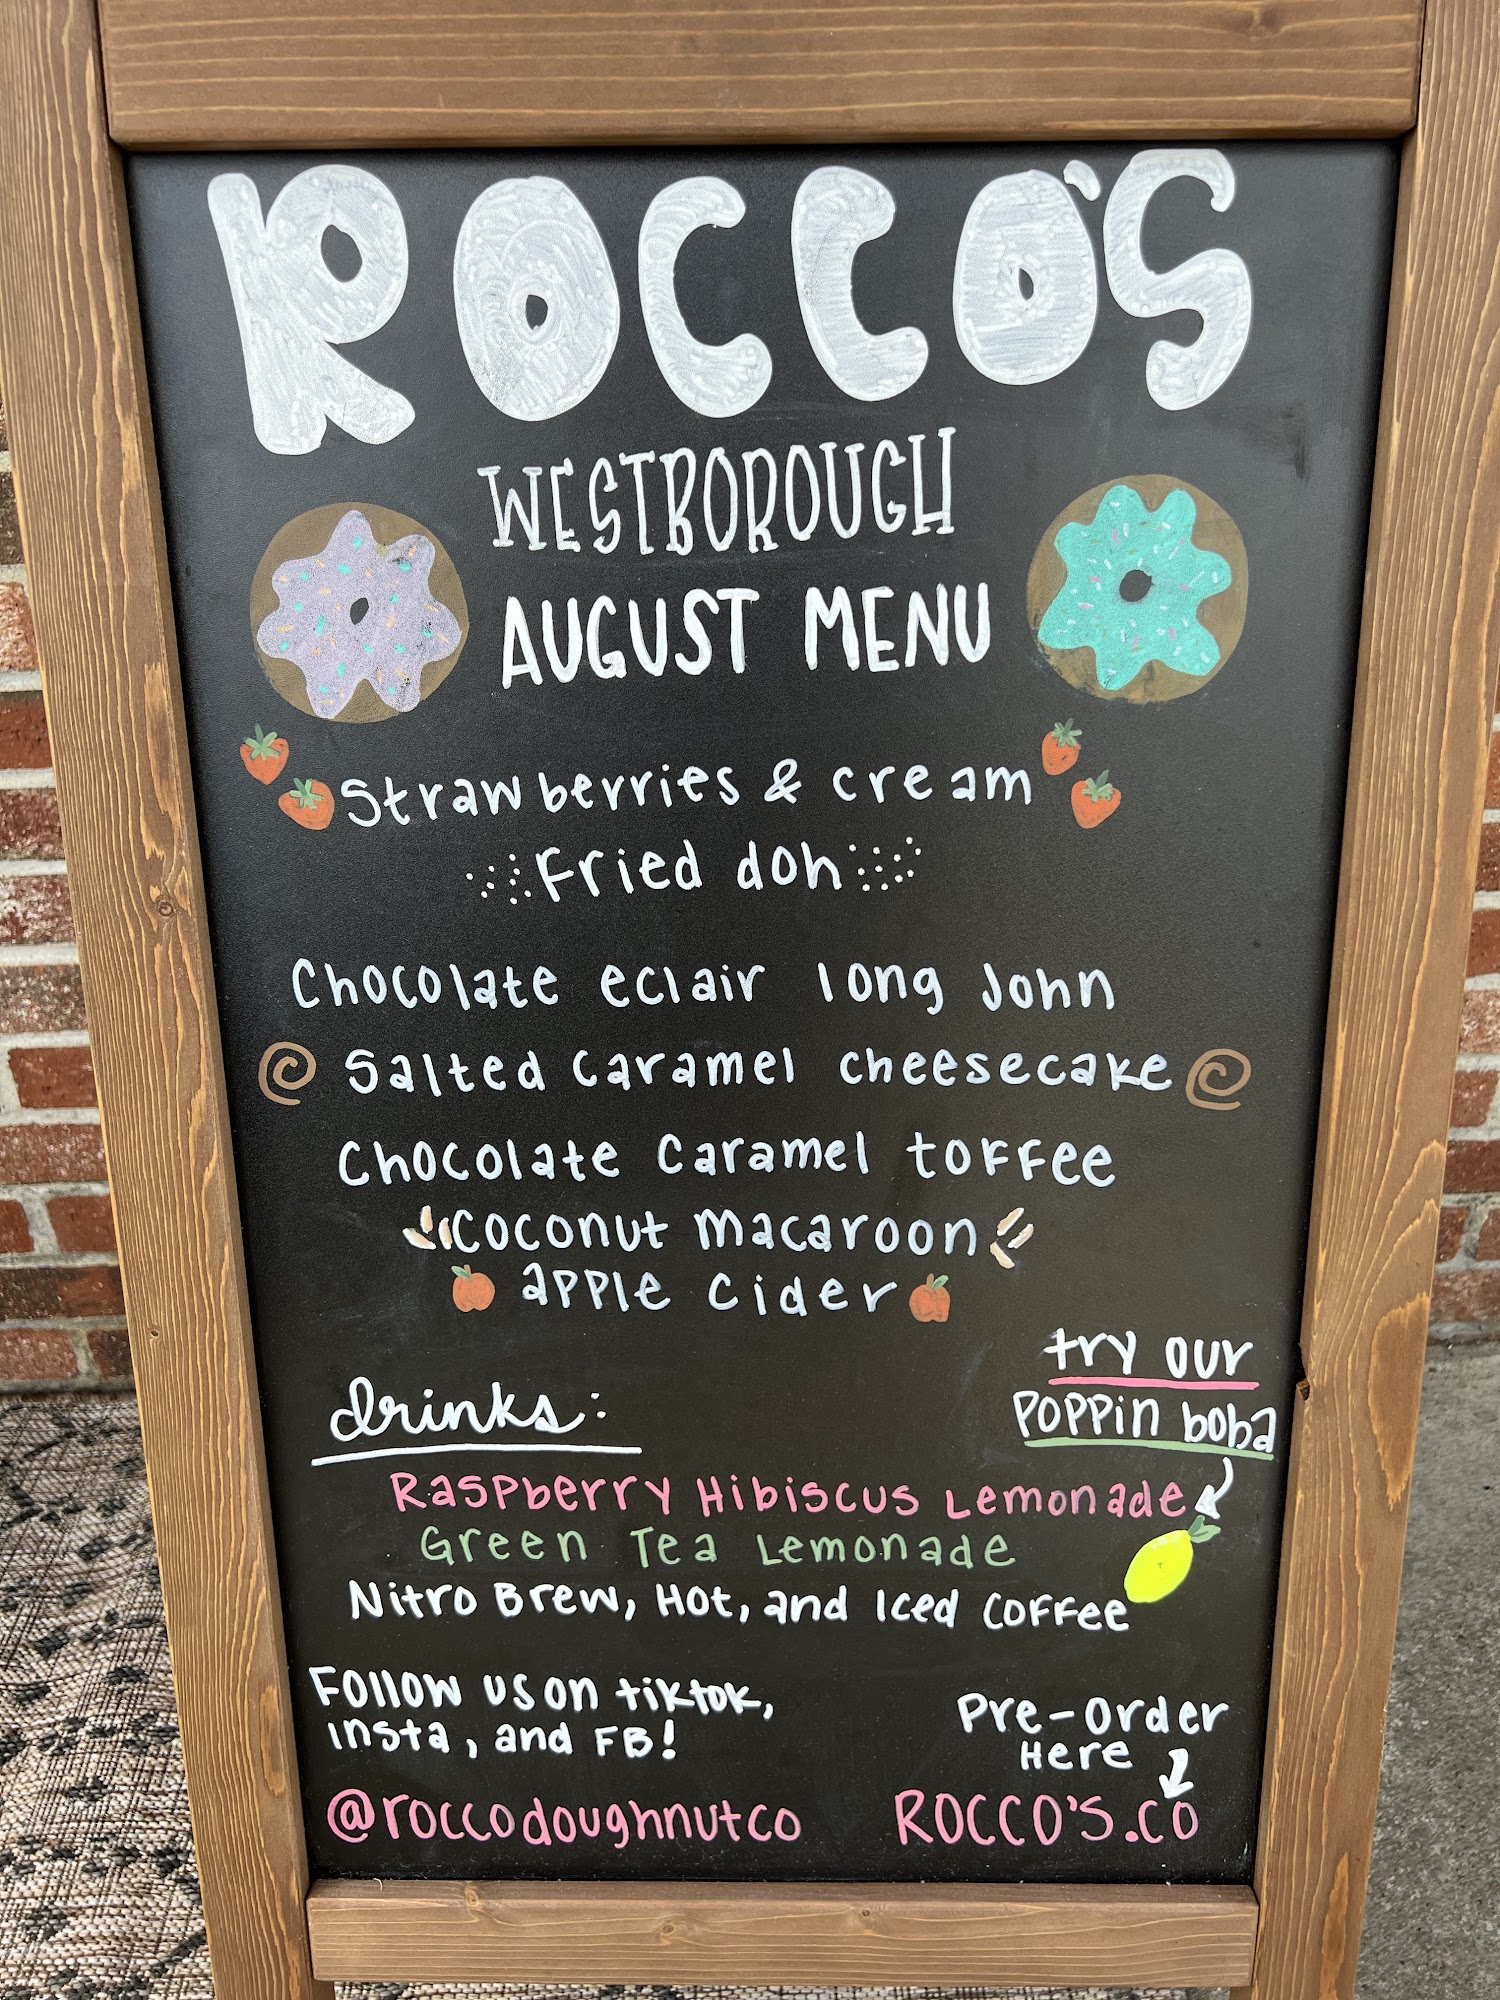 ROCCO'S
WESTBOROUGH
AUGUST MENU
Strawberries & cream
Fried doh
Chocolate eclair long John
Salted Caramel cheesecake
Chocolate Caramel toffee
Coconut macaroon
apple cider
try our
poppin boba
drinks:
Raspberry Hibiscus Lemonade
Green Tea Lemonade
Nitro Brew, Hot, and Iced Coffee
Follow us on tiktok,
insta, and FB!
Pre-order
Here
@roccodoughnutco
ROCCO'S.CO